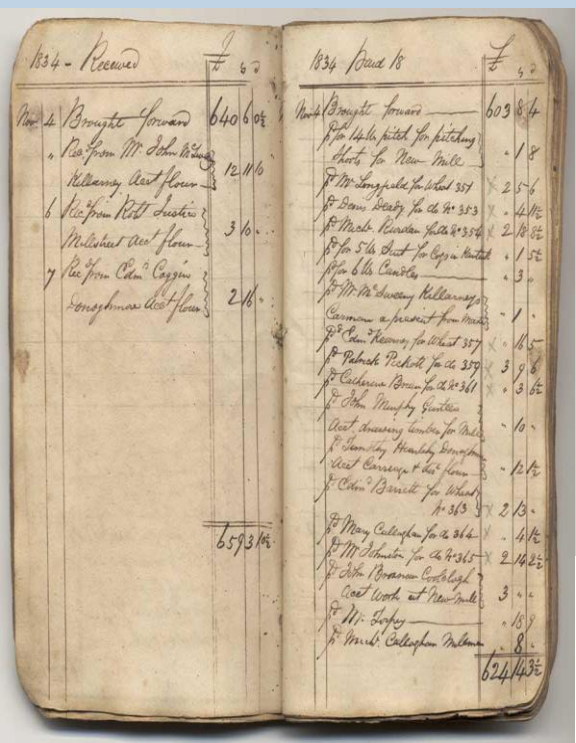 1834 - Received £ s d
Nov 4 Brought forward 640 6 0½
" Recd from Mr John
Killarney Acct flour 12 11 10
6 Recd from Robt Justice
Millstreet Acct flour 3 10 "
7 Recd from Edmd Coggins
Donoghmore Acct flour 2 16 "
659 3 10½
1834 Paid 18 £ s d
Nov 4 Brought forward 603 8 4
pd for 14 lb pitch for pitching
Shoots for New Mill " 1 8
pd Mr Longfield for Wheat 351 x 2 5 6
pd Denis Deady for do No 353 x " 4 11½
pd Michl Riordan for do No 354 x 2 18 8½
pd for 5 lb Suet for Cogs in " 1 5½
pd for 6 lb Candles " 3 "
pd Mr McSweeny Killarneys
Carman a present from " 1 "
pd Edmd Kearney for Wheat 357 x " 16 5
pd Patrick for do 359 x 3 9 6
pd Catherine for do No 361 x " 3 6½
pd John Murphy
Acct drawing timber for Mill " 10 "
pd Timothy Donoghmore
Acct Carriage & flour " 12 1½
pd Edmd Barrett for Wheat
No 363 x 2 13 "
pd Mary Callaghan for do 364 x " 4 1½
pd Mr Johnston for do No 365 x 2 14 2½
pd John Brosnan
Acct Work at New Mill 3 " "
pd Wm " 18 9
pd Michl Callaghan " 8 "
624 14 3½